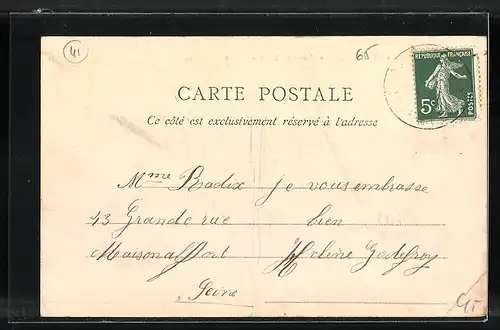 41
65
REPUBLIQUE FRANÇAISE
5c
POSTES
CARTE POSTALE
Ce côté est exclusivement réservé à l'adresse
Mme Radix je vous embrasse
43 Grande rue bien
Maisonalfort Helène Godefroy
Seine